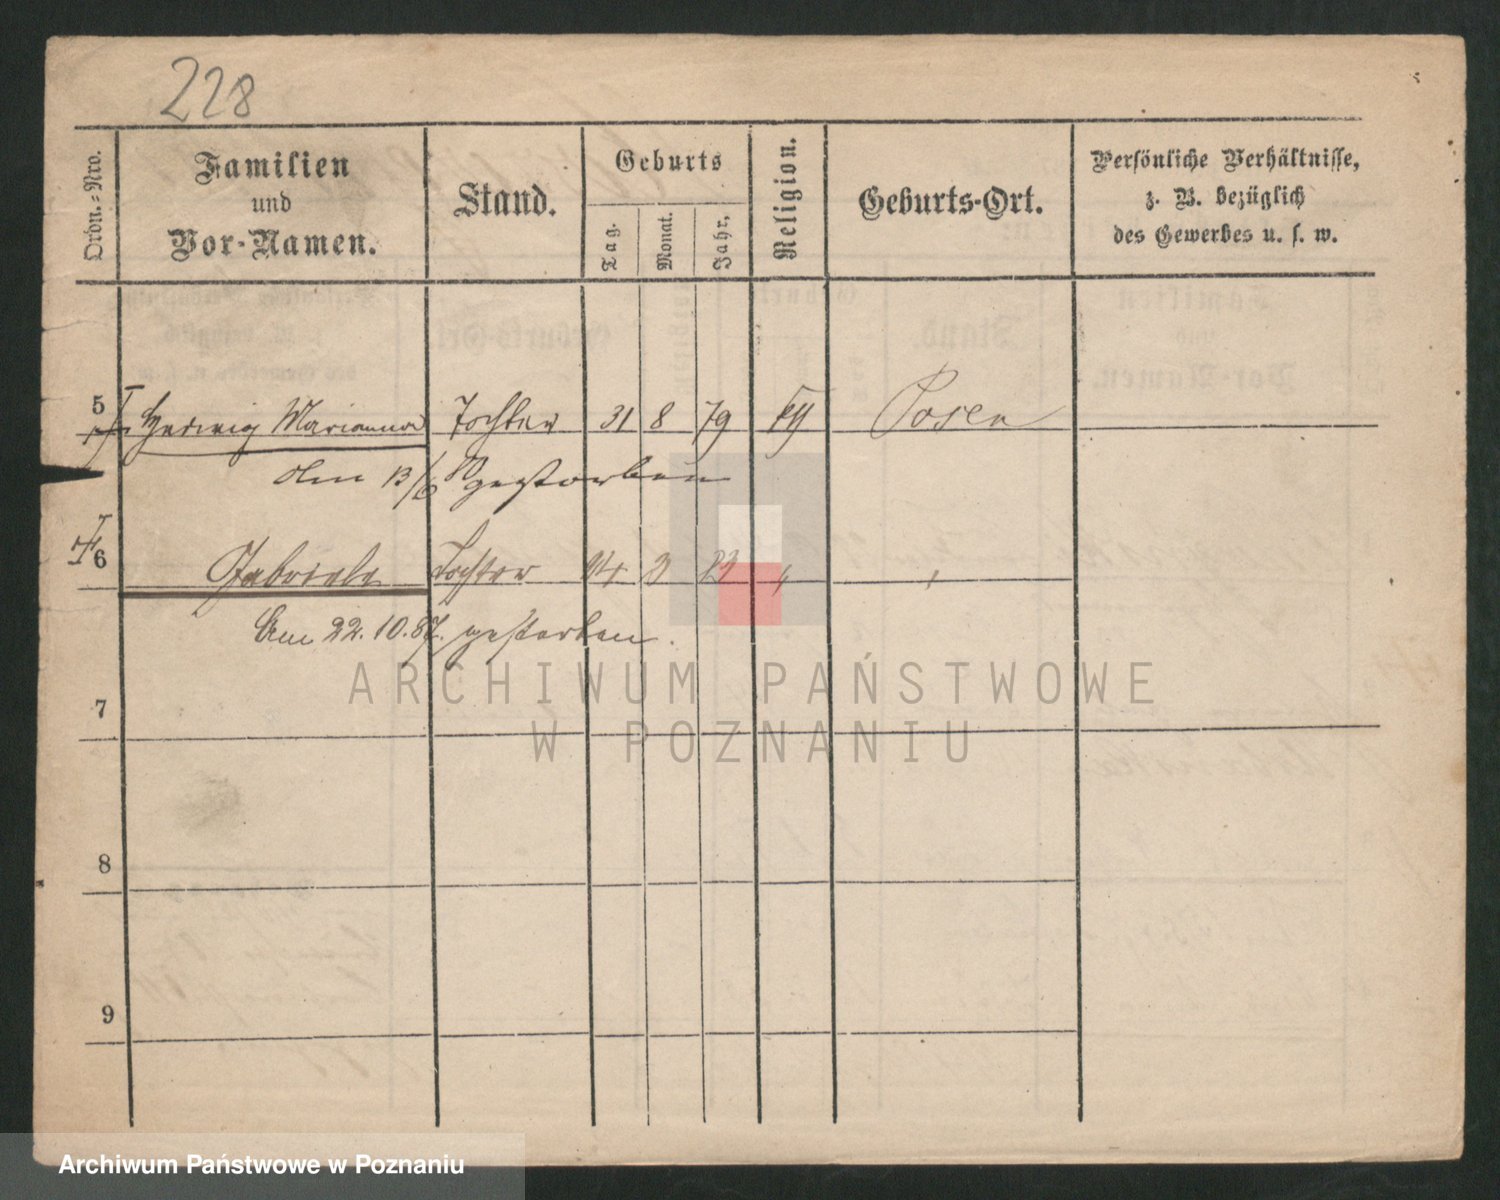 228
Ordn.-Nro.
Familien
und
Vor-Namen.
Stand.
Geburts
Tag.
Monat.
Jahr.
Religion.
Geburts-Ort.
Persönliche Verhältnisse,
z. B. bezüglich
des Gewerbes u. s. w.
5 Hedwig Marianna Tochter 31 8 79 Posen
Am 13/6 80 gestorben
6 Gabriele Tochter 14 3 83 "
Am 22. 10. 87. gestorben.
ARCHIWUM PAŃSTWOWE
W POZNANIU
7
8
9
Archiwum Państwowe w Poznaniu